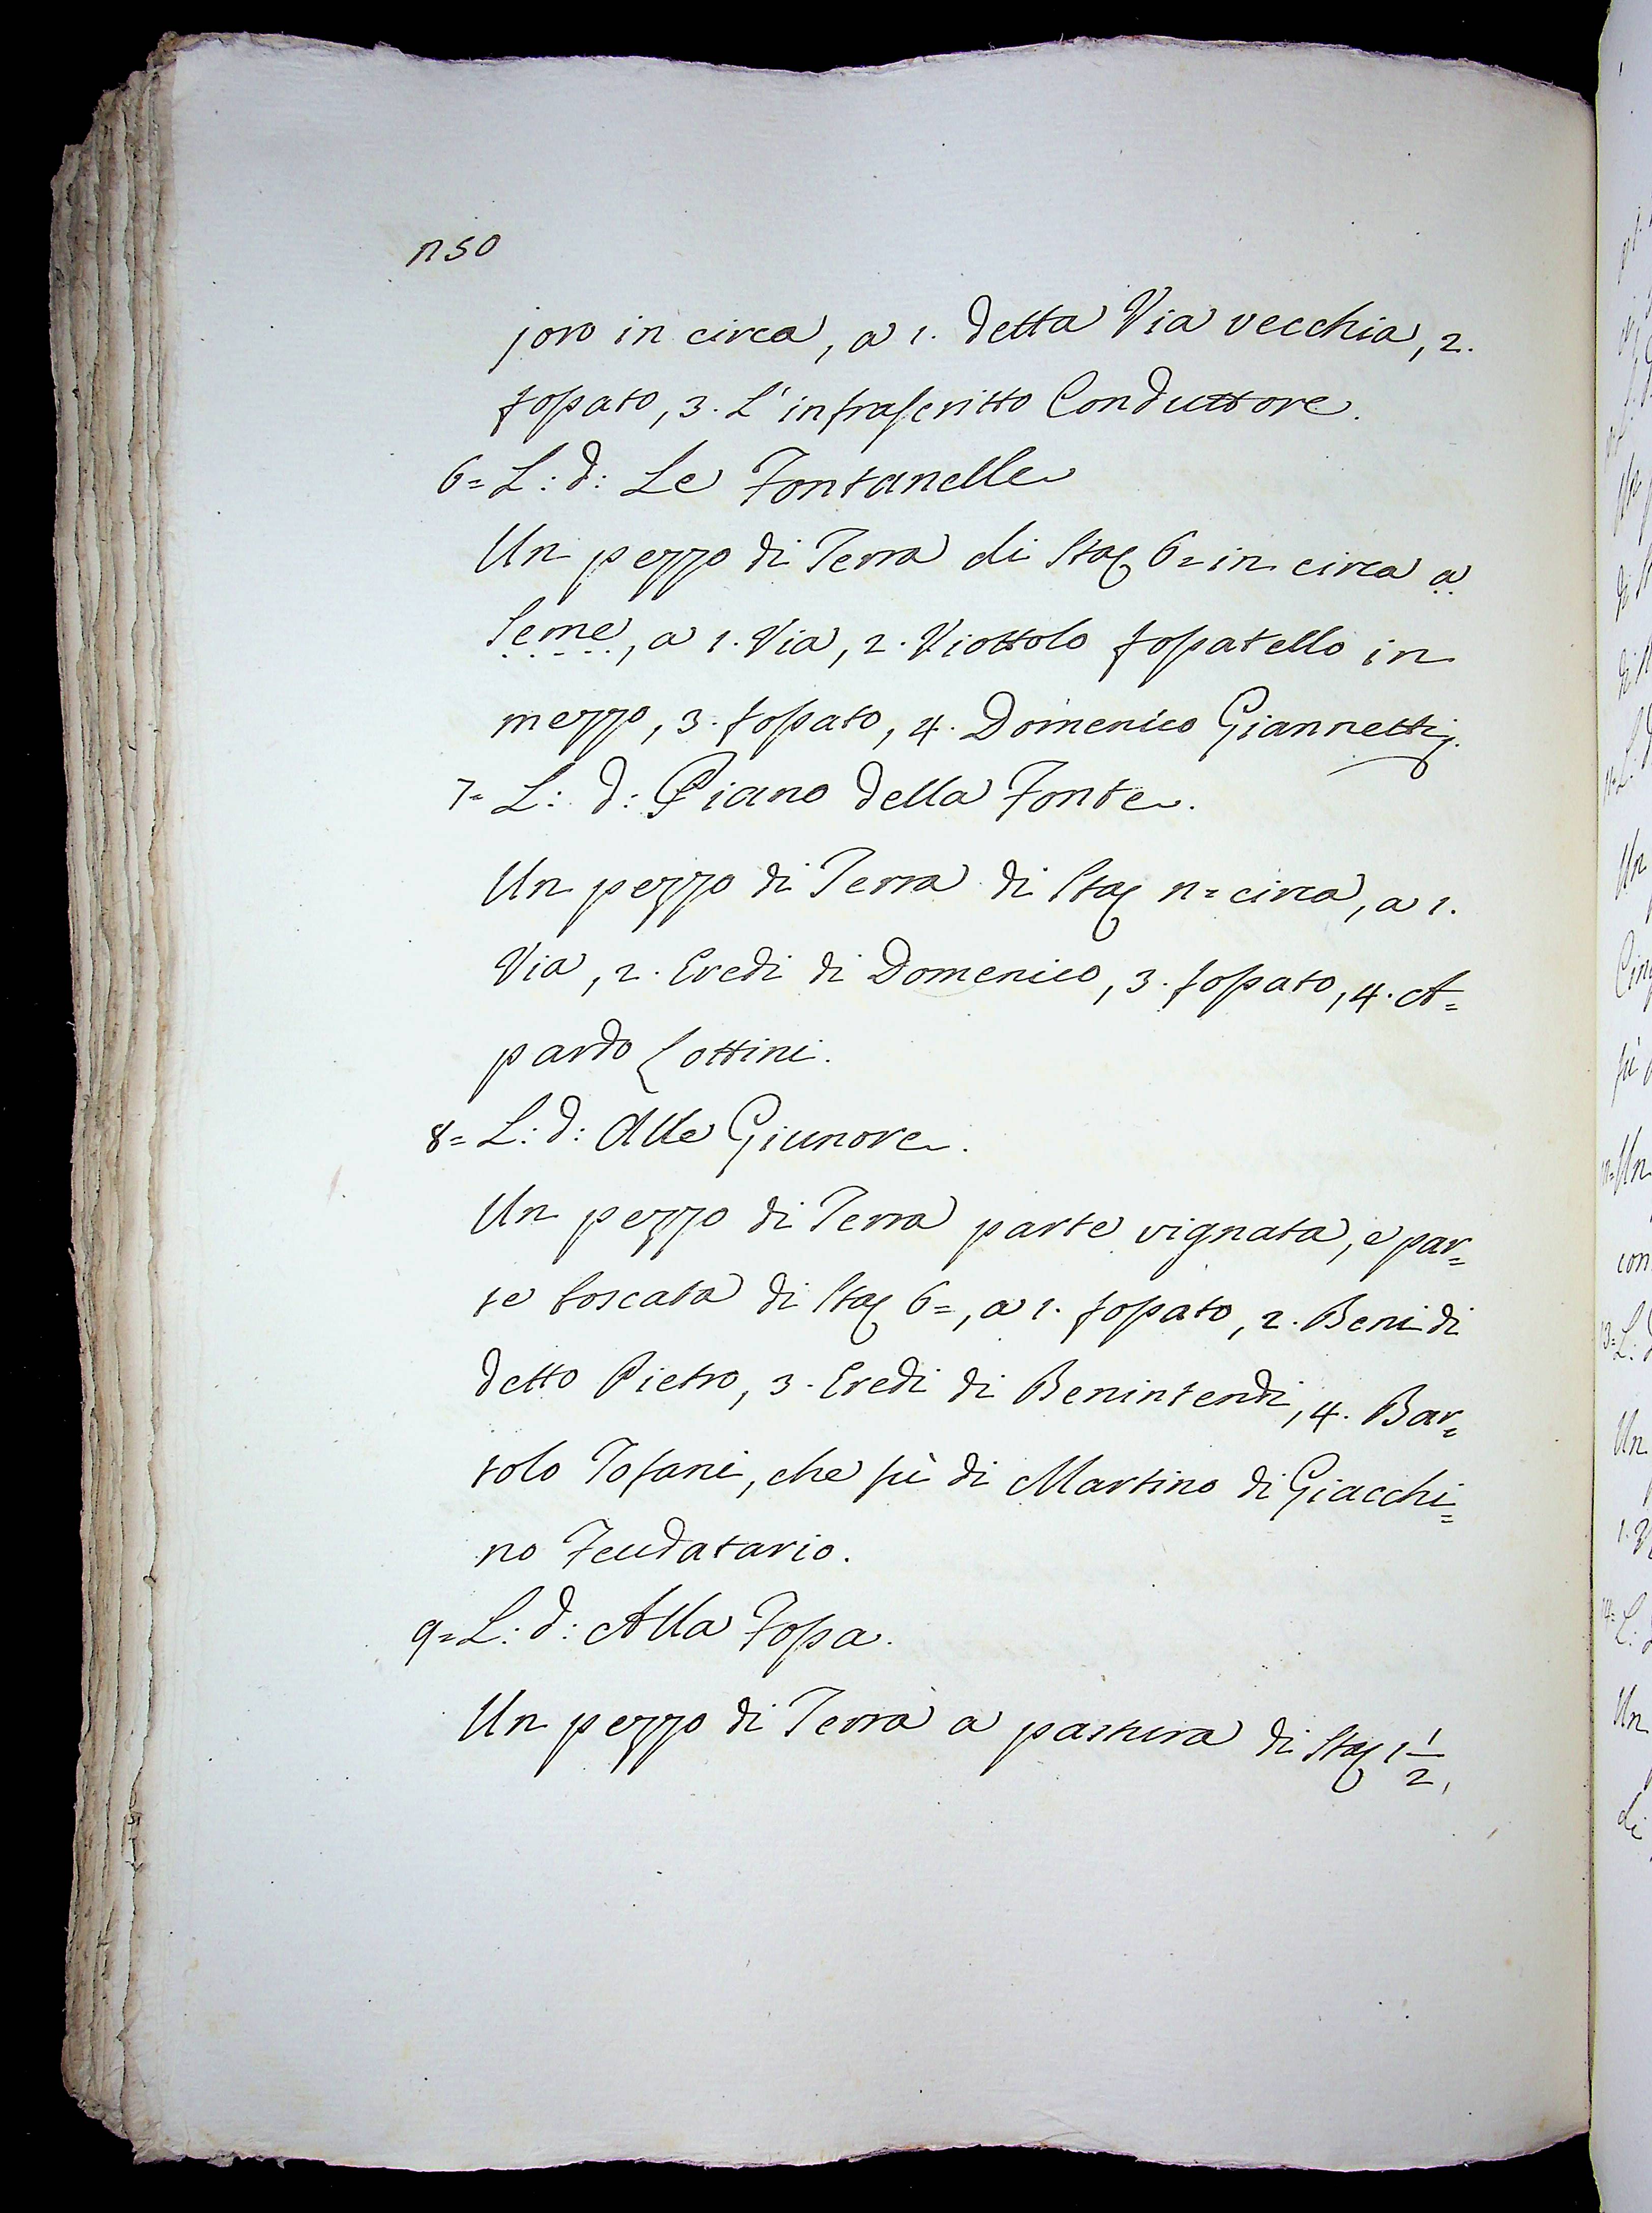 1150
joro in circa, a 1. detta Via vecchia, 2.
fossato, 3. L'infrascritto Conduttore.
6= L: d: Le Fontanelle
Un pezzo di Terra di Staʃ 6= in circa a
Seme, a 1. Via, 2. Viottolo fossatello in
mezzo, 3. fossato, 4. Domenico Giannettj.
7= L: d: Piano della Fonte.
Un pezzo di Terra di Staʃ 11= circa, a 1.
Via, 2. Eredi di Domenico, 3. fossato, 4. A=
pardo Lottini.
8= L: d: Alle Giunore.
Un pezzo di Terra parte vignata, e par=
te boscata di Staʃ 6=, a 1. fossato, 2. Beni di
detto Pietro, 3. Eredi di Benintendi, 4. Bar=
tolo Tofani, che fù di Martino di Giacchi=
no Feudatario.
9= L: d: Alla Fossa.
Un pezzo di Terra a pastura di Staʃ 1 1/2,